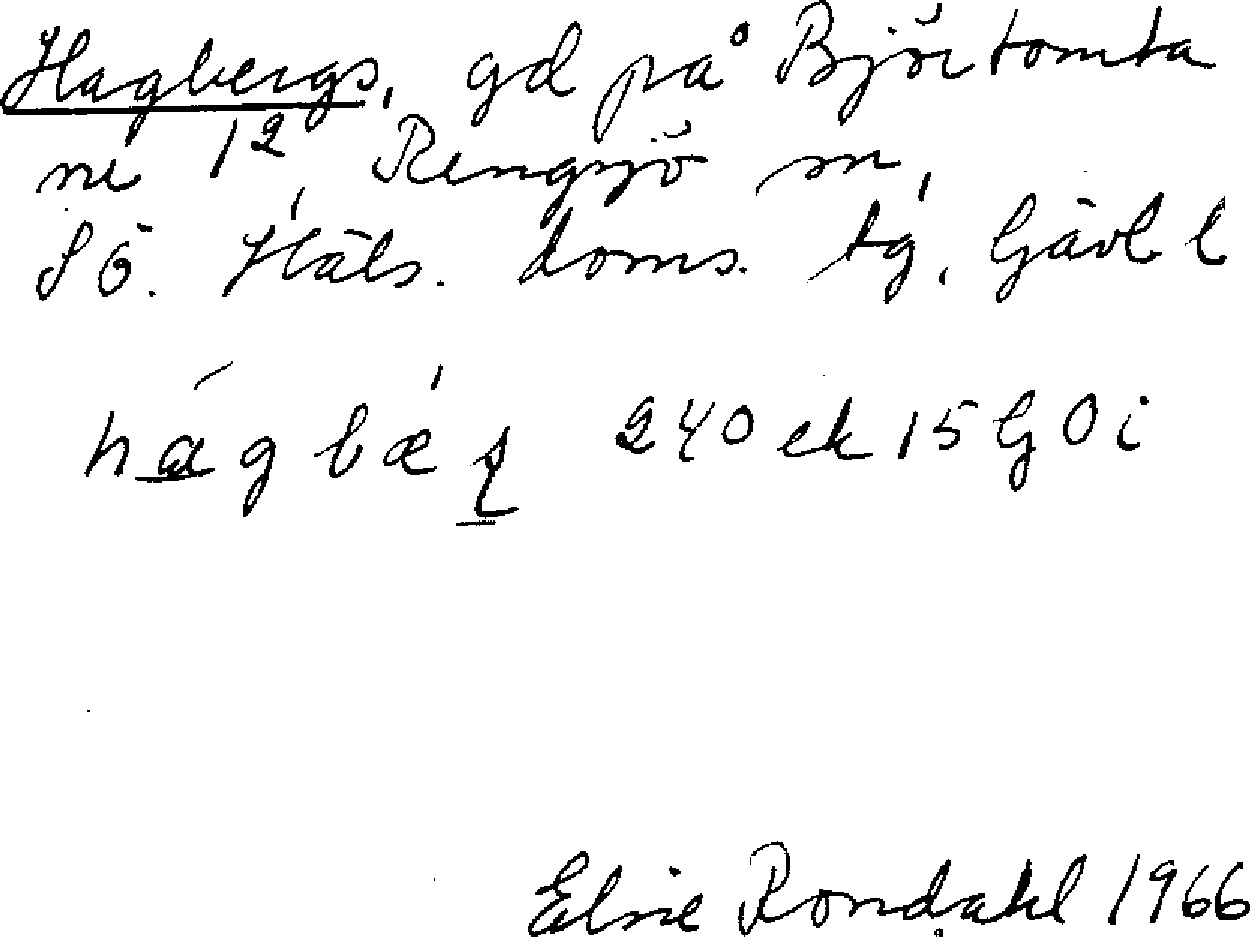 Hagbergs, gd på Björtomta
nr 1² Rengsjö sn,
SÖ. Häls. doms. tg, Gävl l
hágbæ̀ʂ 240 ek 15 G O i
Elsie Rondahl 1966